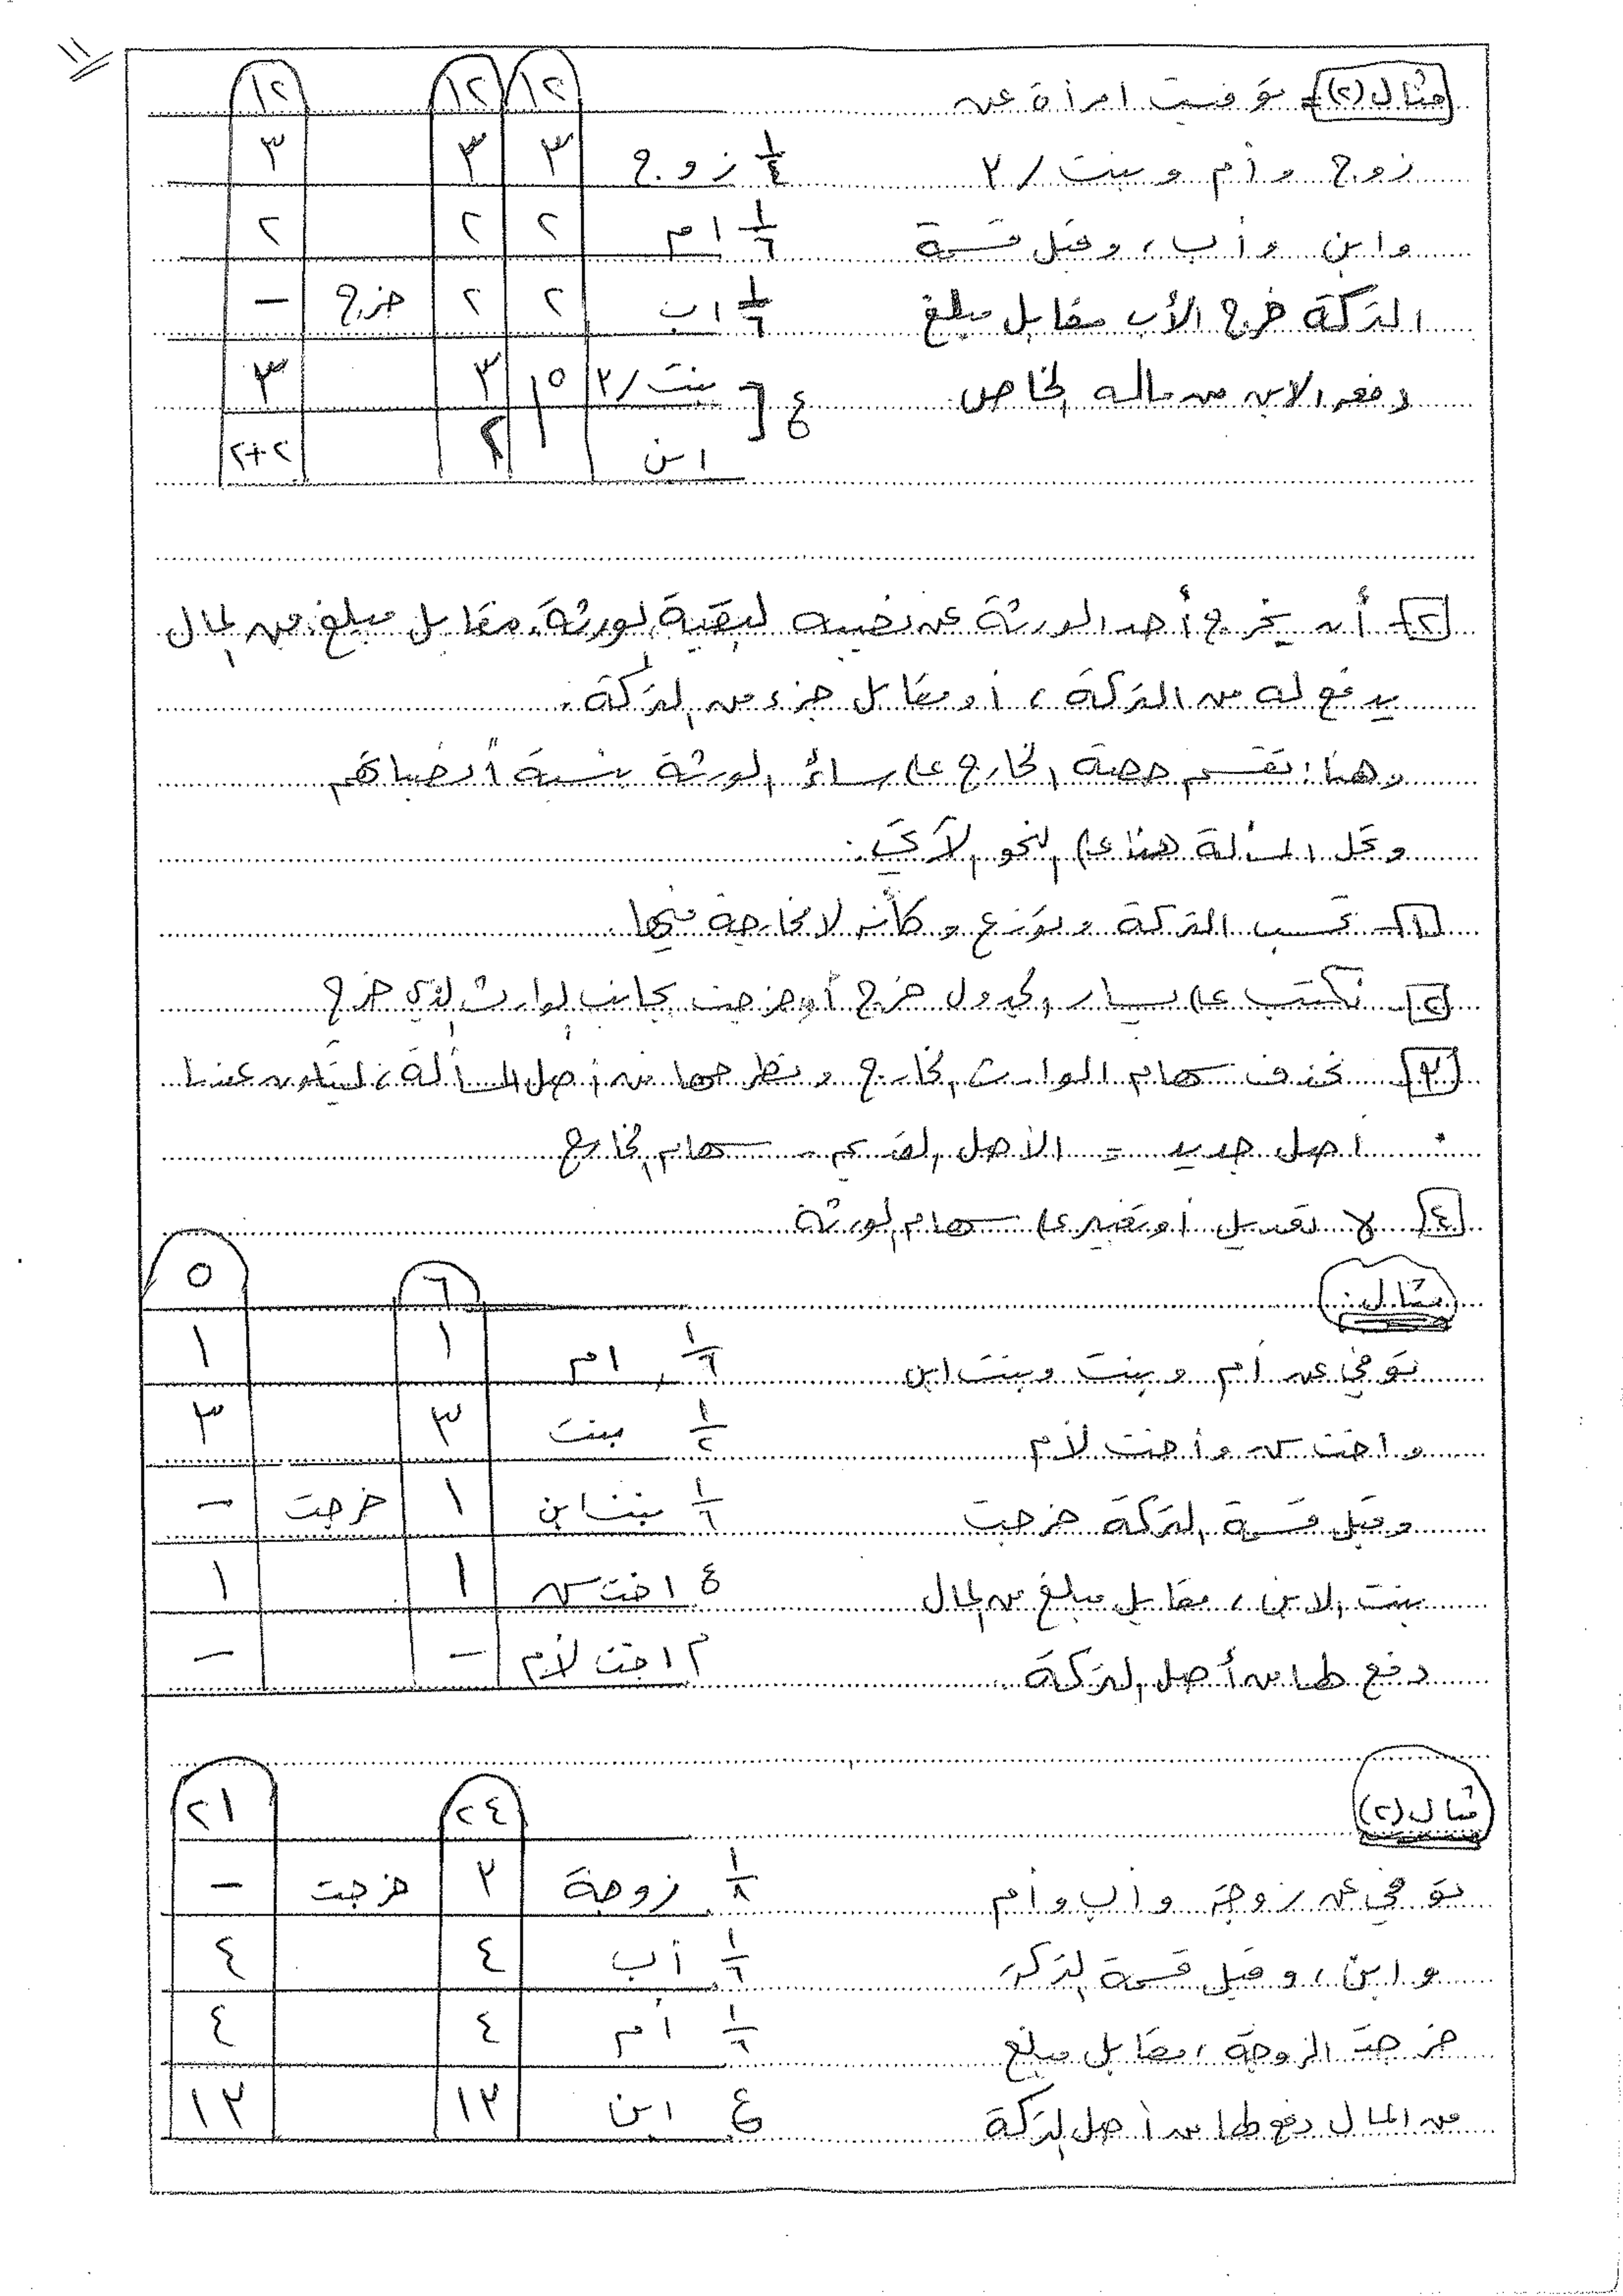 ١١
مثال (٢) - توفيت امرأة عن
زوج وأم وبنت / ٣
وابن وأب، وقبل قسمة
التركة خرج الأب مقابل مبلغ
دفعه الابن من ماله الخاص
١٢ ١٢ ١٢
١/٤ زوج ٣ ٣ ٣
١/٦ ام ٢ ٢ ٢
١/٦ اب ٢ ٢ خرج -
ع [ بنت / ٣ ٥ ٣ ٣
ابن ٢ ٢+٢
٢- أن يخرج أحد الورثة عن نصيبه لبقية الورثة مقابل مبلغ من المال
يدفع له من التركة، أو مقابل جزء من التركة.
وهنا: تقسم حصة الخارج على سائر الورثة بنسبة أنصبائهم
وتحل المسألة هنا على النحو الآتي:
١- تحسب التركة وتوزع وكأنه لا مخارجة فيها.
٢- نكتب على يسار الجدول خرج أو خرجت بجانب الوارث الذي خرج
٣- نحذف سهام الوارث الخارج ونطرحها من أصل المسألة، لينتج عندنا
أصل جديد = الأصل القديم - سهام الخارج
٤- لا تعديل أو تغيير على سهام الورثة
مثال:
توفي عن أم وبنت وبنت ابن
واخت ش وأخت لأم
وقبل قسمة التركة خرجت
بنت الابن، مقابل مبلغ من المال
دفع لها من أصل التركة
٦ ٥
١/٦ ام ١ ١
١/٢ بنت ٣ ٣
١/٦ بنت ابن ١ خرجت -
ع اخت ش ١ ١
م اخت لأم - -
مثال (٢)
توفي عن زوجة وأب وأم
وابن، وقبل قسمة التركة
خرجت الزوجة، مقابل مبلغ
من المال دفع لها من أصل التركة
٢٤ ٢١
١/٨ زوجة ٣ خرجت -
١/٦ أب ٤ ٤
١/٦ أم ٤ ٤
ع ابن ١٣ ١٣